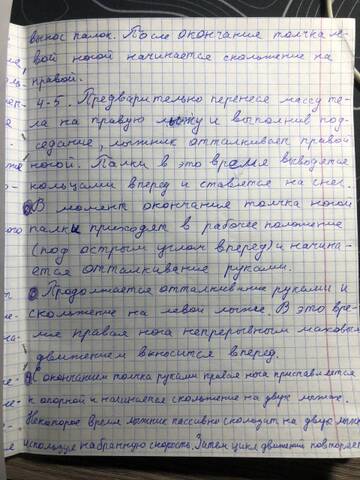 вынос палок. После окончания толчка ле-
вой ногой начинается скольжение на
правой.
4-5. Предварительно перенеся массу те-
ла на правую лыжу и выполнив под-
седание, лыжник отталкивается правой
ногой. Палки в это время выводятся
кольцами вперед и ставятся на снег.
В момент окончания толчка ногой
палки приходят в рабочее положение
(под острым углом вперед) и начина-
ется отталкивание руками.
Продолжается отталкивание руками и
скольжение на левой лыже. В это вре-
мя правая нога непрерывным маховым
движением выносится вперед.
С окончанием толчка руками правая нога приставляется
к опорной и начинается скольжение на двух лыжах.
Некоторое время лыжник пассивно скользит на двух лыжах
используя набранную скорость. Затем цикл движений повторяет